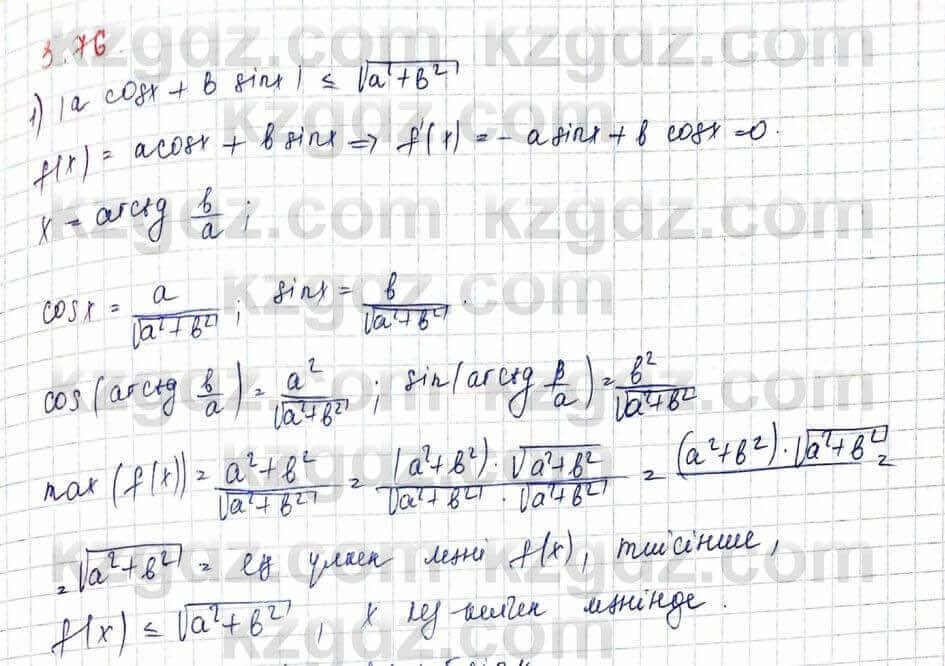 3.76.
1) |a cosx + b sinx| ≤ √(a²+b²)
f(x) = a cosx + b sinx ⇒ f'(x) = -a sinx + b cosx = 0.
x = arctg b/a ;
cosx = a/√(a²+b²) ; sinx = b/√(a²+b²).
cos(arctg b/a) = a²/√(a²+b²) ; sin(arctg b/a) = b²/√(a²+b²)
max(f(x)) = (a²+b²)/√(a²+b²) = (a²+b²)·√(a²+b²)/(√(a²+b²)·√(a²+b²)) = (a²+b²)·√(a²+b²) =
= √(a²+b²) = ең үлкен мәні f(x), тиісінше,
f(x) ≤ √(a²+b²), x кез-келген мәнінде.
kzgdz.com